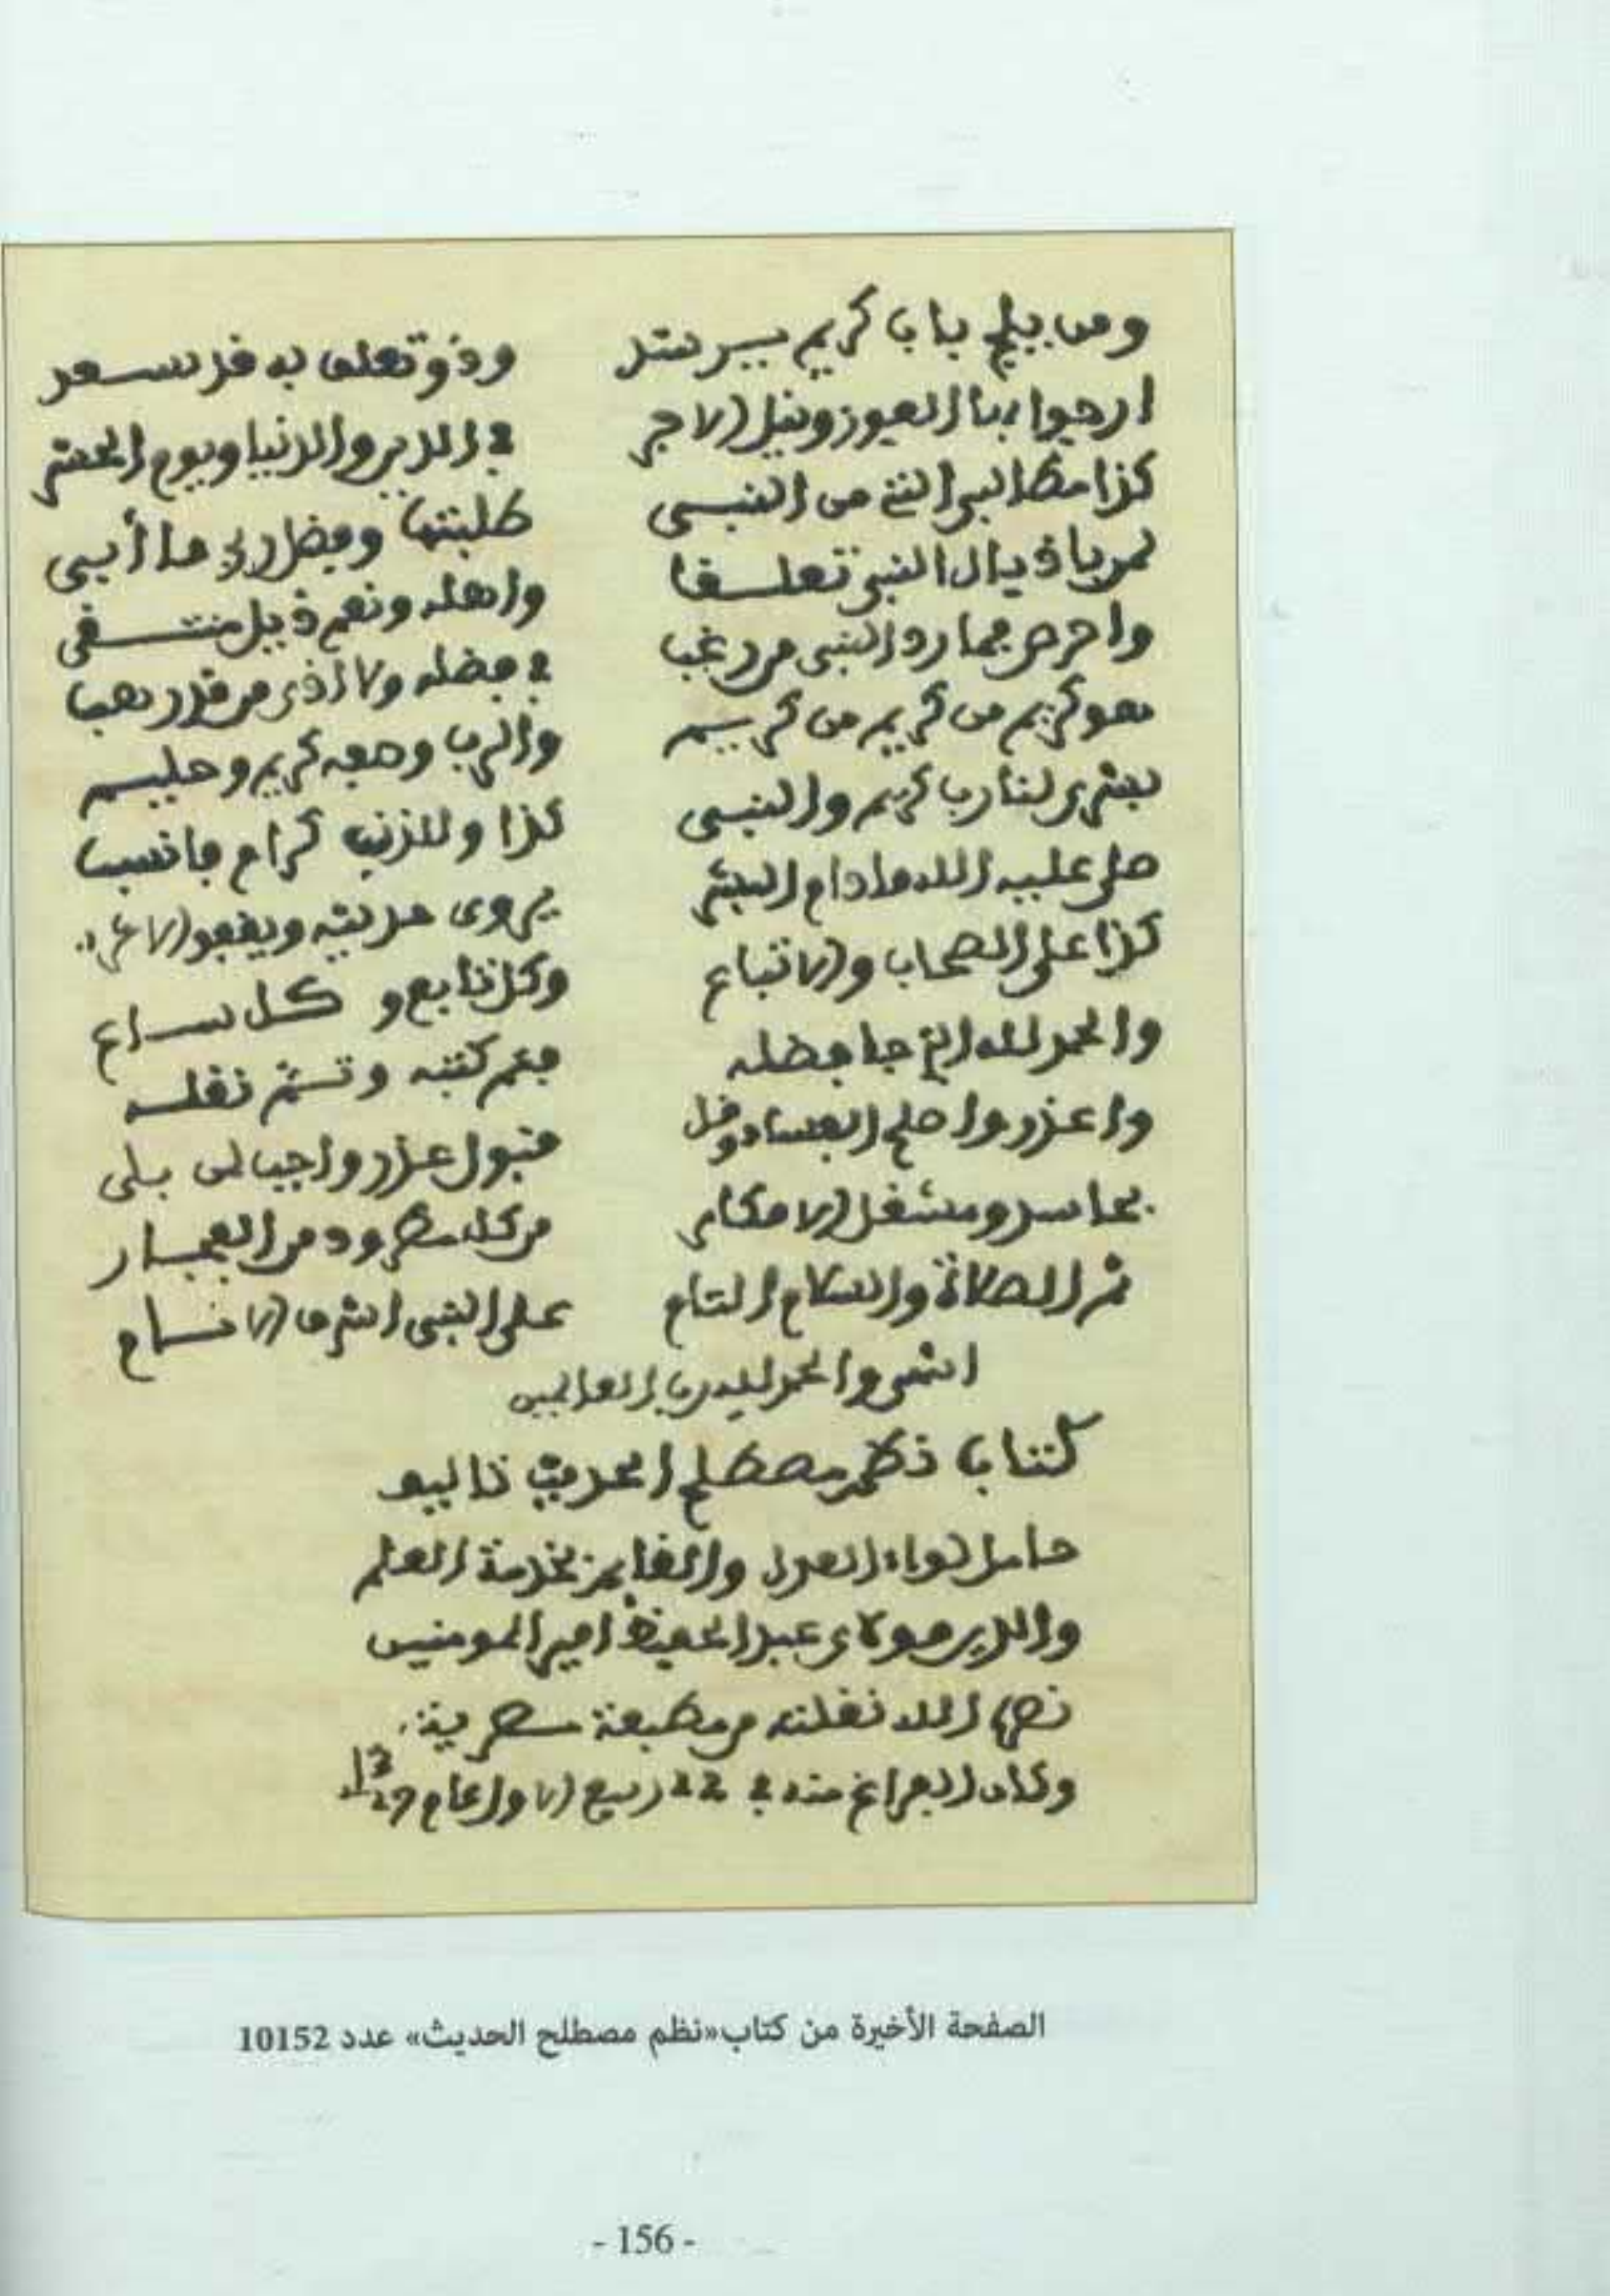 ومن يلج باب كريم يسرتد وذو تعلق به قد سعد
ارجوا بها الفوز ونيل الاجر في الدين والدنيا ويوم الحشر
كذا مطالبي التي من النبي طلبتها وفضل ربي ما أبي
لمن باذيال النبي تعلقا واهله ونعم ذيل منتقى
واحرص فما رد النبي من رغب في فضله ولا الذي من قد رهب
فهو كريم من كريم من كريم والرب وصفه كريم وحليم
بشرى لنا رب كريم والنبي كذا وللذنب كرام فانسب
صلى عليه الله مادام البشر يروى حديثه ويقفو الاثر
كذا على الصحاب والاتباع وكل تابع و كل ساع
والحمد لله الذي جا فضله فعم كتبه وتم نقله
واعذر واصلح الفساد وقل قبول عذر واجب لمن بلي
بحاسد ومشغل الافكار من كل مطرود من الفجار
ثم الصلاة والسلام التام على النبي اشرف الانام
انتهى والحمد لله رب العالمين
كتاب نظم مصطلح الحديث تاليف
حامل لواء العدل والقايم بخدمة العلم
والدين مولاي عبد الحفيظ امير المومنين
نصره الله نقلته من مطبعة مصرية
وكان الفراغ منه في 22 ربيع الاول عام 1327
الصفحة الأخيرة من كتاب«نظم مصطلح الحديث» عدد 10152
- 156 -